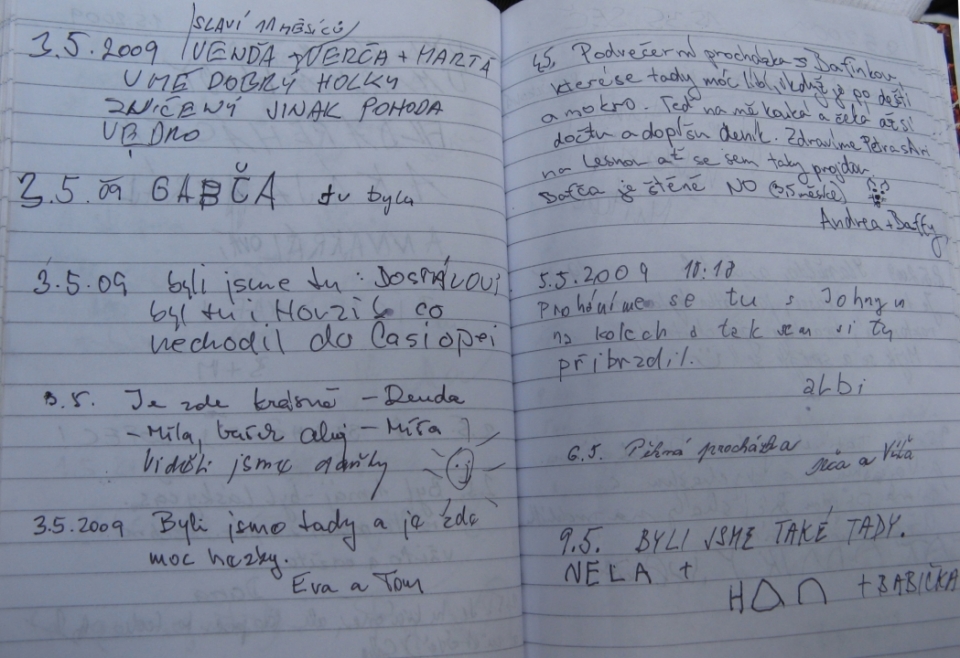 /SLAVÍ 11 MĚSÍCŮ/
3.5.2009 VENDA + VERČA + MARTA
UMĚ DOBRÝ HOLKY
ZNIČENÝ JINAK POHODA
VEDRO
3.5.09 GABČA tu byla
3.5.09 byli jsme tu: DOSPÁLOVI
byl tu i HOVZÍK co
nechodil do Casiopei
3.5. Je zde krásně - Denda
- Míla, ahoj - Míša
Viděli jsme
3.5.2009 Byli jsmo tady a je zde
moc hezky.
Eva a Tom
4.5. Podvečerní procházka s Dafinkou,
které se tady moc líbí, i když je po dešti
a mokro. Teď na mě kouká a čeká až si
dočtu a dopíšu deník. Zdravíme
na Lesnou ať se sem taky projdou
Dafča je štěně NO (3,5 měsíce)
Andrea + Daffy
5.5.2009 18:18
Proháníme se tu s Johnym
na kolech a tak sem si tu
přibrzdil.
aLbi
6.5. Pěkná procházka
a Víťa
9.5. BYLI JSME TAKÉ TADY.
NELA +
HON + BABIČKA